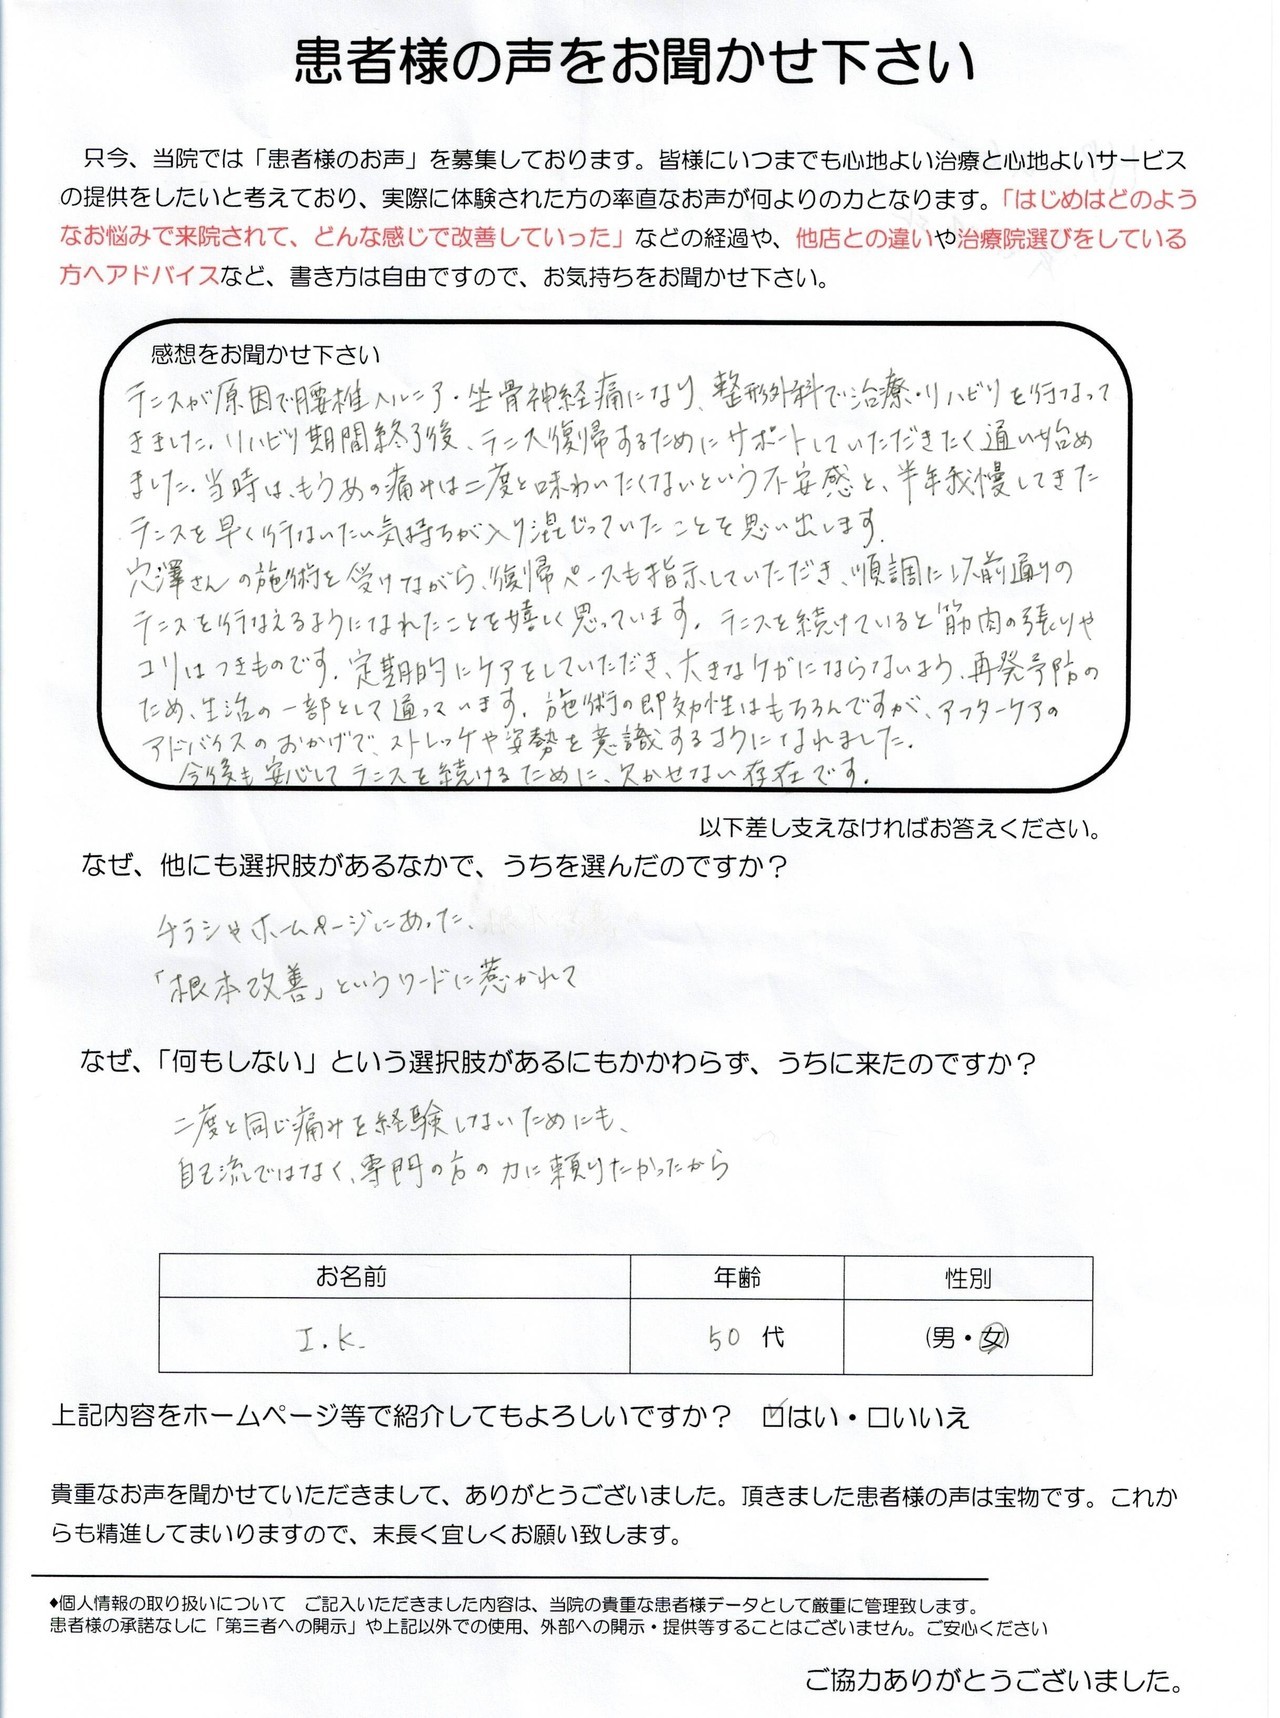 患者様の声をお聞かせ下さい
只今、当院では「患者様のお声」を募集しております。皆様にいつまでも心地よい治療と心地よいサービス
の提供をしたいと考えており、実際に体験された方の率直なお声が何よりの力となります。「はじめはどのよう
なお悩みで来院されて、どんな感じで改善していった」などの経過や、他店との違いや治療院選びをしている
方へアドバイスなど、書き方は自由ですので、お気持ちをお聞かせ下さい。
感想をお聞かせ下さい
テニスが原因で腰椎ヘルニア・坐骨神経痛になり、整形外科で治療・リハビリを行なって
きました。リハビリ期間終了後、テニス復帰するためにサポートしていただきたく通い始め
ました。当時は、もうあの痛みは二度と味わいたくないという不安感と、半年我慢してきた
テニスを早く行ないたい気持ちが入り混じっていたことを思い出します。
穴澤さんの施術を受けながら、復帰ペースも指示していただき、順調に以前通りの
テニスを行なえるようになれたことを嬉しく思っています。テニスを続けていると筋肉の張りや
コリはつきものです。定期的にケアをしていただき、大きなケガにならないよう、再発予防の
ため、生活の一部として通っています。施術の即効性はもちろんですが、アフターケアの
アドバイスのおかげで、ストレッチや姿勢を意識するようになれました。
今後も安心してテニスを続けるために、欠かせない存在です。
以下差し支えなければお答えください。
なぜ、他にも選択肢があるなかで、うちを選んだのですか？
チラシやホームページにあった、
「根本改善」というワードに惹かれて
なぜ、「何もしない」という選択肢があるにもかかわらず、うちに来たのですか？
二度と同じ痛みを経験しないためにも、
自己流ではなく、専門の方の力に頼りたかったから
お名前 年齢 性別
I.K. 50 代 (男・女)
上記内容をホームページ等で紹介してもよろしいですか？ ☑はい・□いいえ
貴重なお声を聞かせていただきまして、ありがとうございました。頂きました患者様の声は宝物です。これか
らも精進してまいりますので、末長く宜しくお願い致します。
◆個人情報の取り扱いについて ご記入いただきました内容は、当院の貴重な患者様データとして厳重に管理致します。
患者様の承諾なしに「第三者への開示」や上記以外での使用、外部への開示・提供等することはございません。ご安心ください
ご協力ありがとうございました。